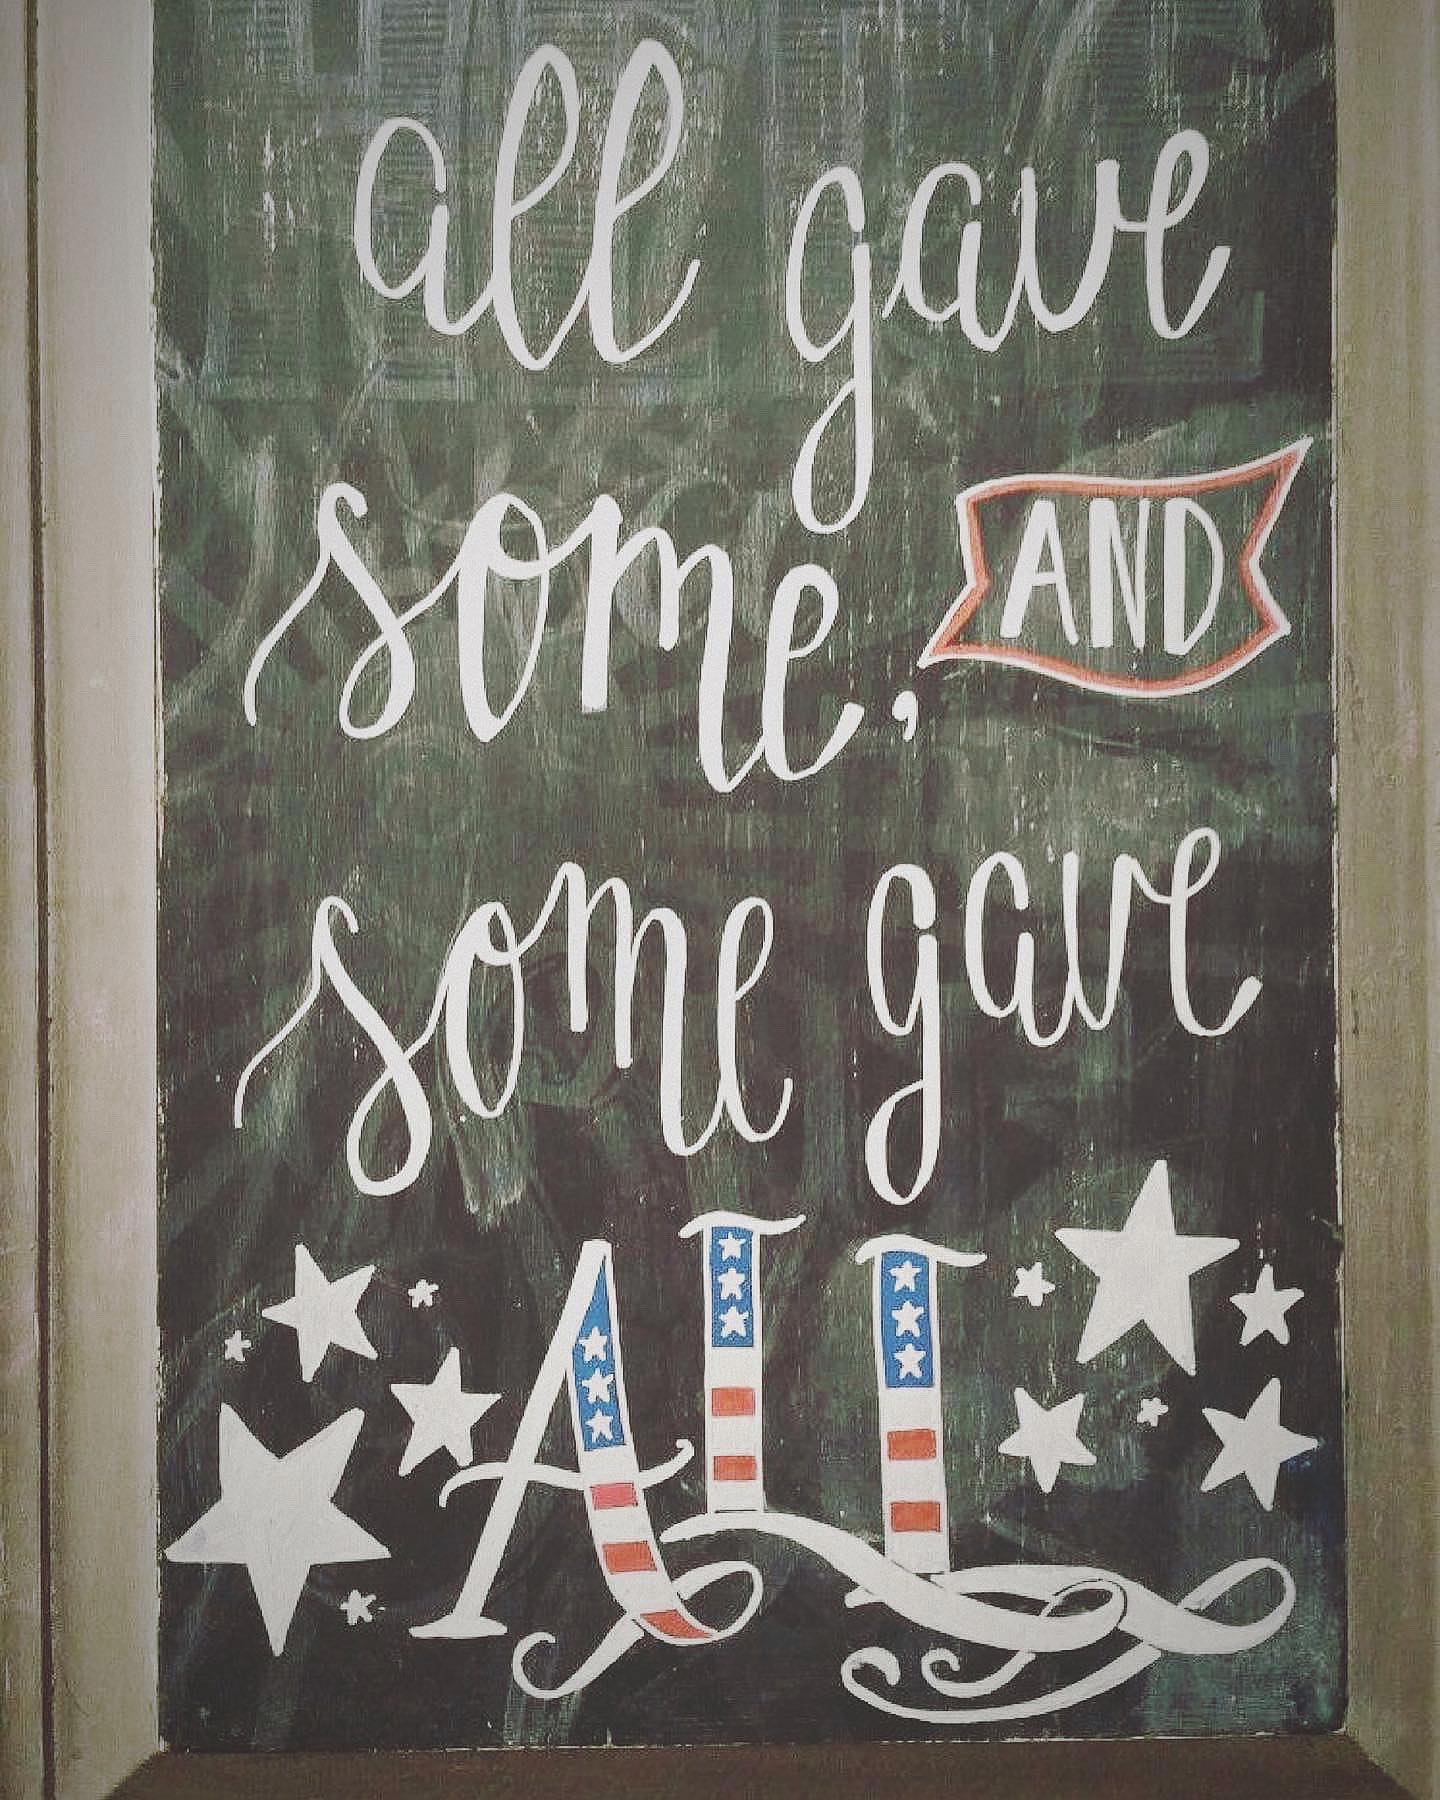 all gave
some, AND
some gave
ALL